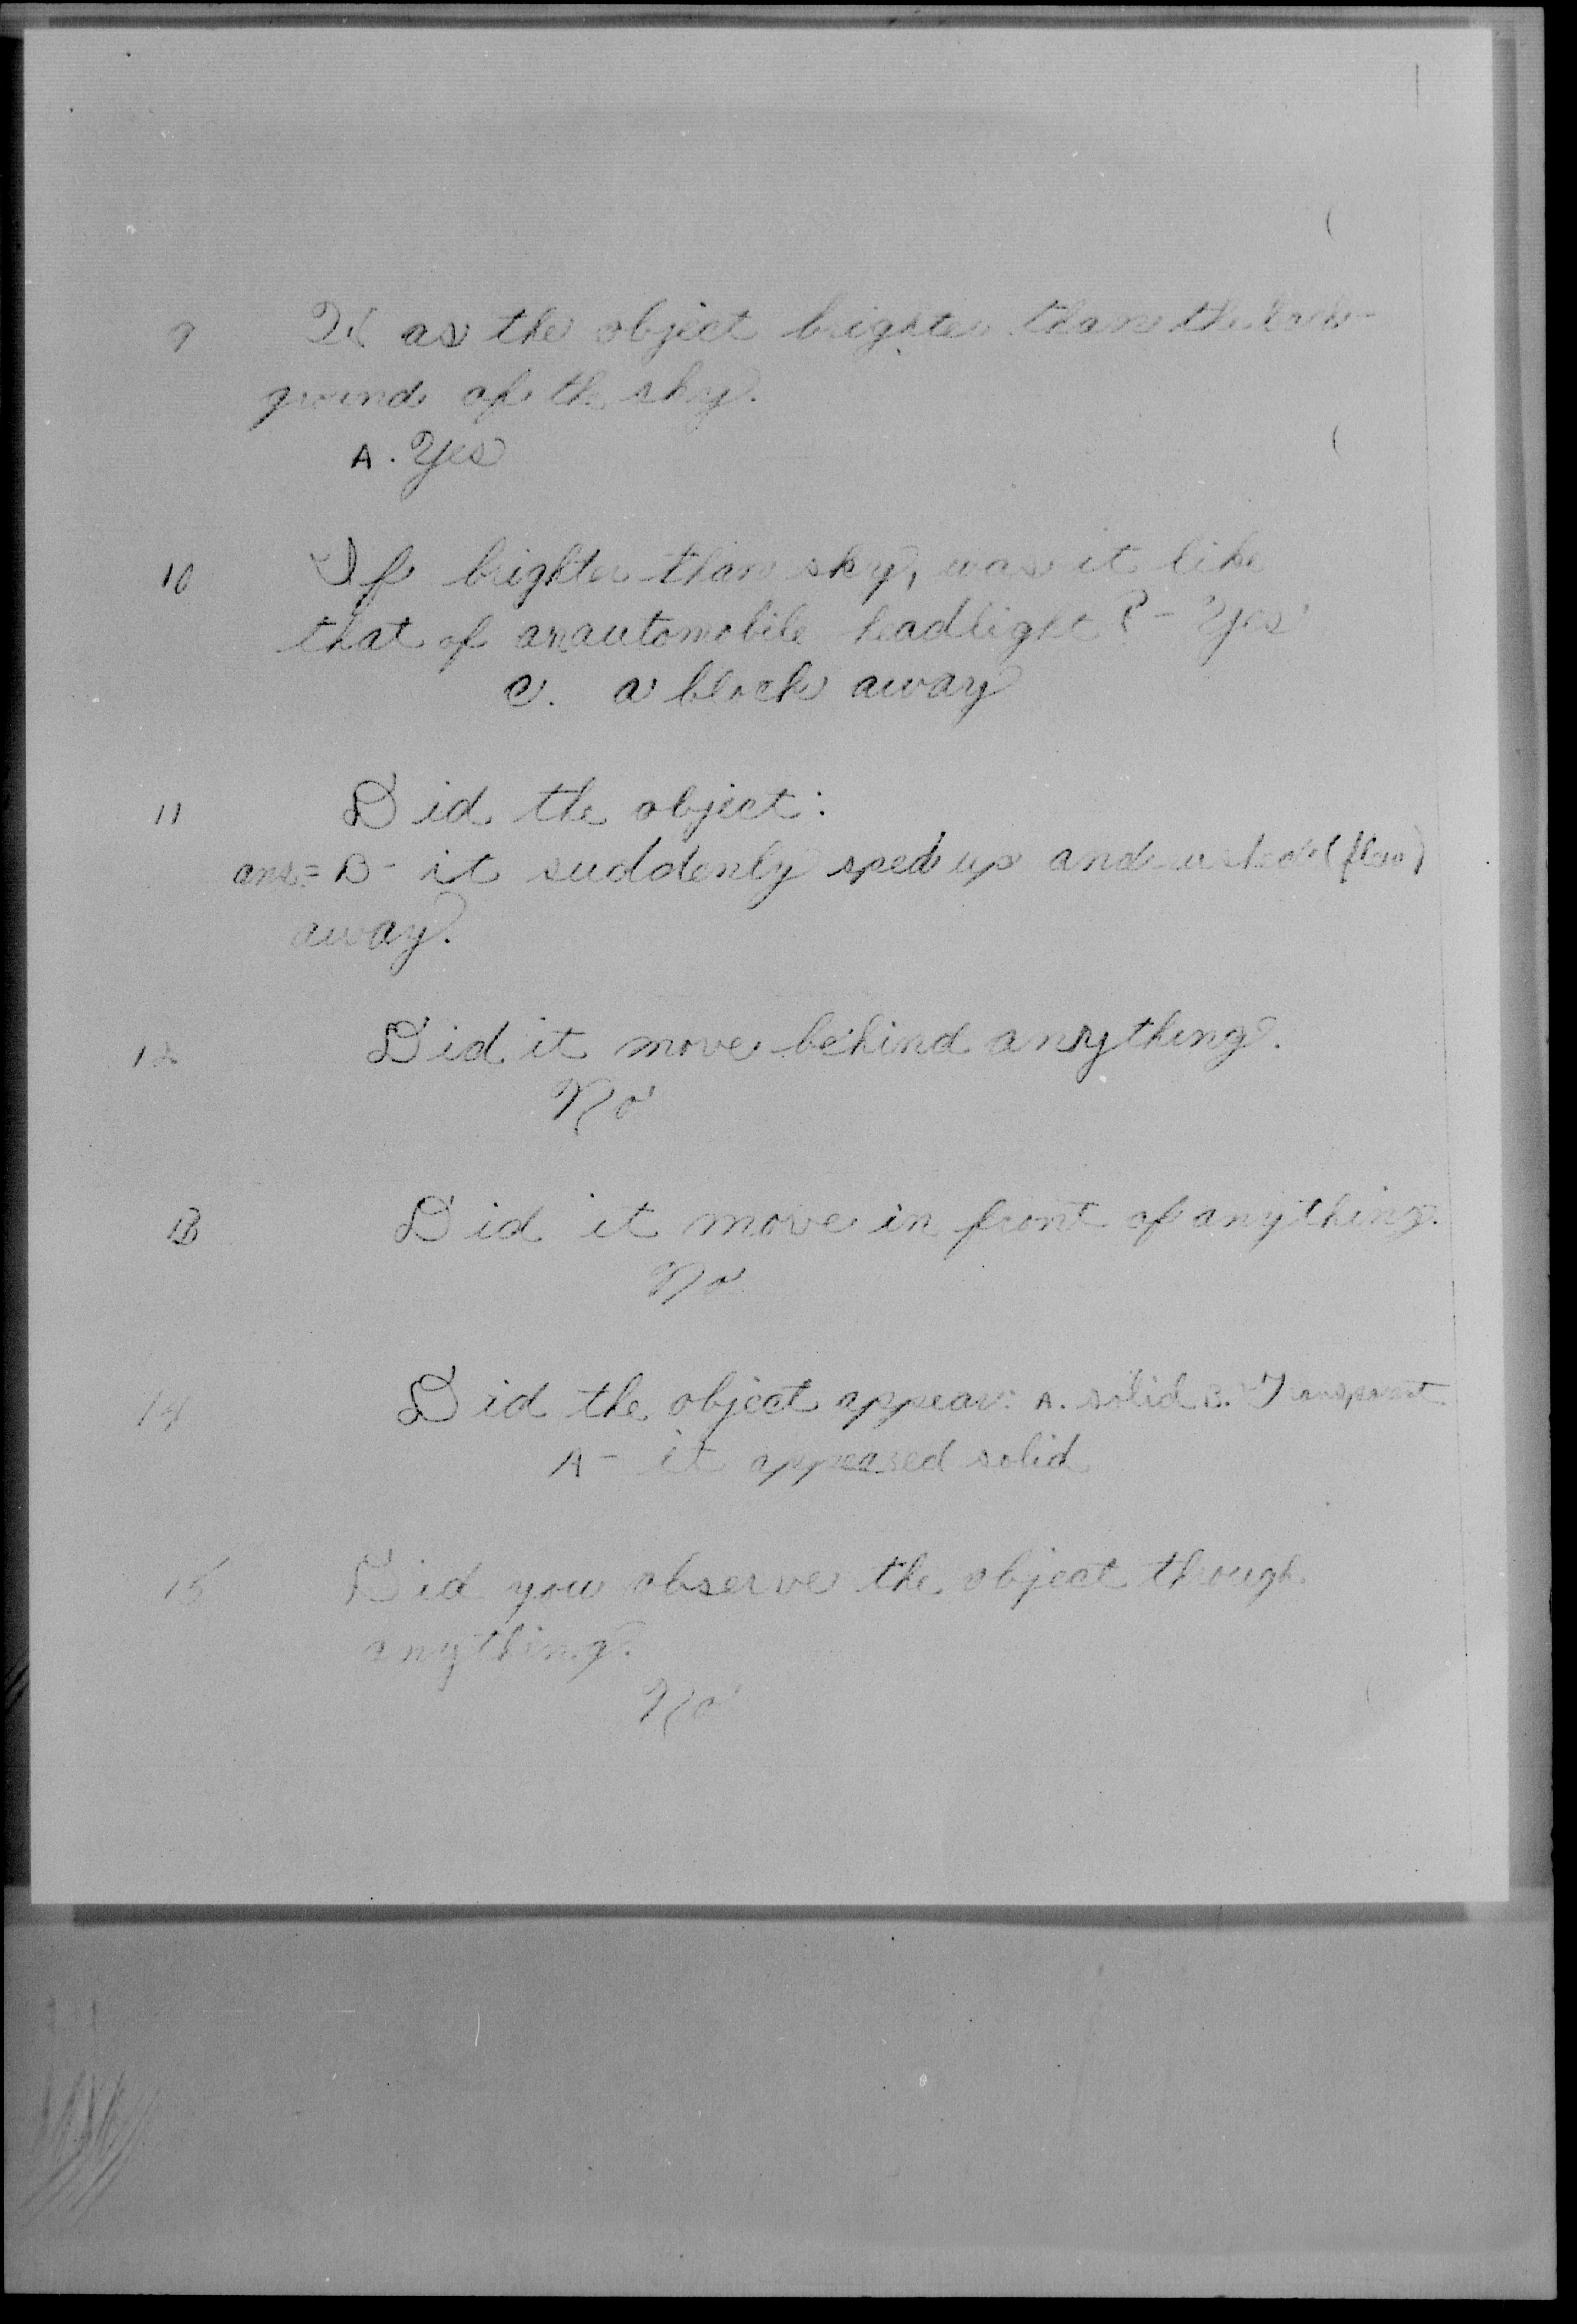 9 Was the object brighter than the back-
ground of the sky.
A. Yes
10 If brighter than sky, was it like
that of an automobile headlight? - Yes
c. a block away
11 Did the object:
ans = B - it suddenly sped up and rushed (flew)
away.
12 Did it move behind anything.
No
13 Did it move in front of anything.
No
14 Did the object appear: A. solid B. Transparent
A - it appeared solid
15 Did you observe the object though
anything.
No